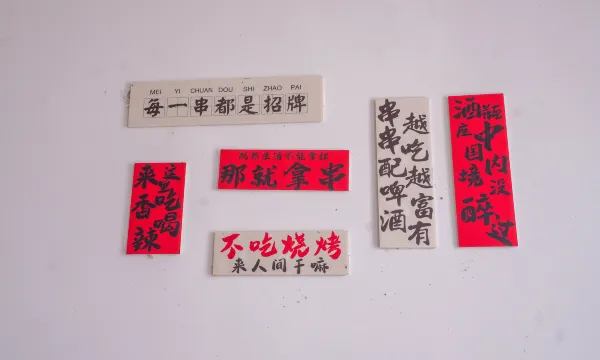 MEI YI CHUAN DOU SHI ZHAO PAI
每一串都是招牌
来这吃香喝辣
那就拿串
不吃烧烤
来人间干嘛
串串配啤酒
越吃越富有
在中国境内没醉过